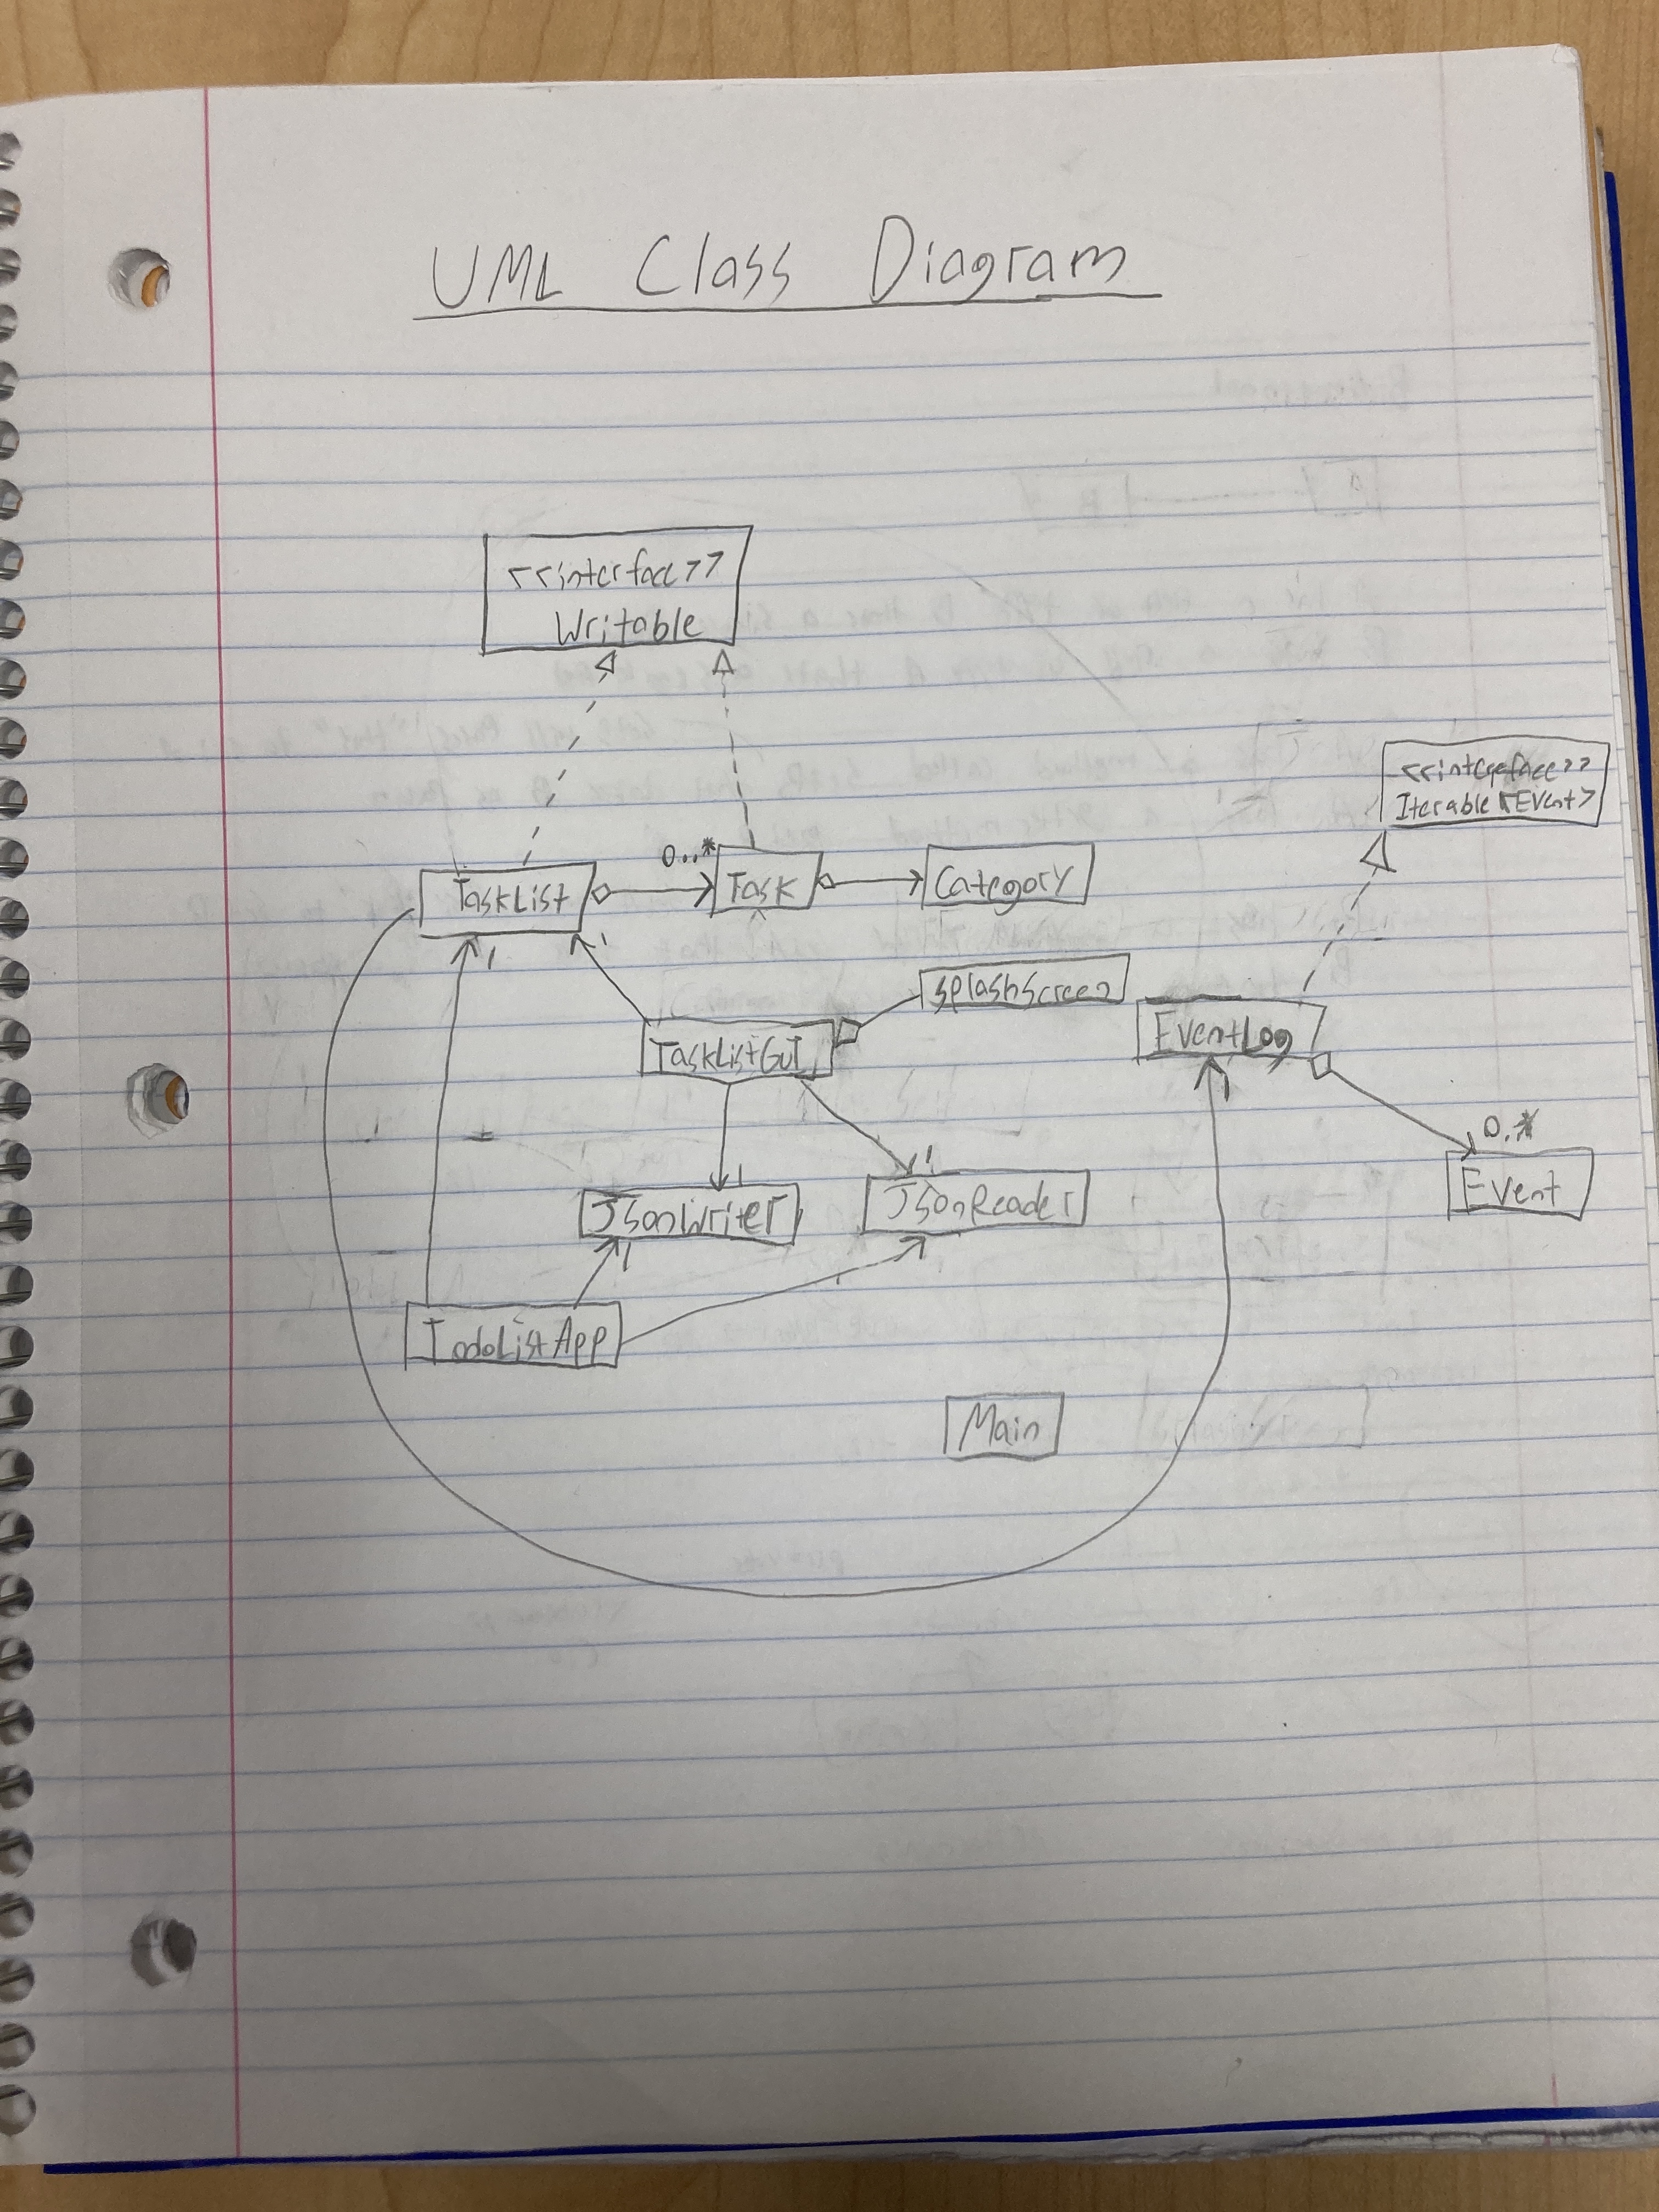 UML Class Diagram
<<interface>>
Writable
<<interface>>
Iterable<Event>
0..*
TaskList
Task
Category
1
1
SplashScreen
TaskListGUI
EventLog
1
0..*
1
1
Event
JsonWriter
JsonReader
1
1
TodoListApp
Main